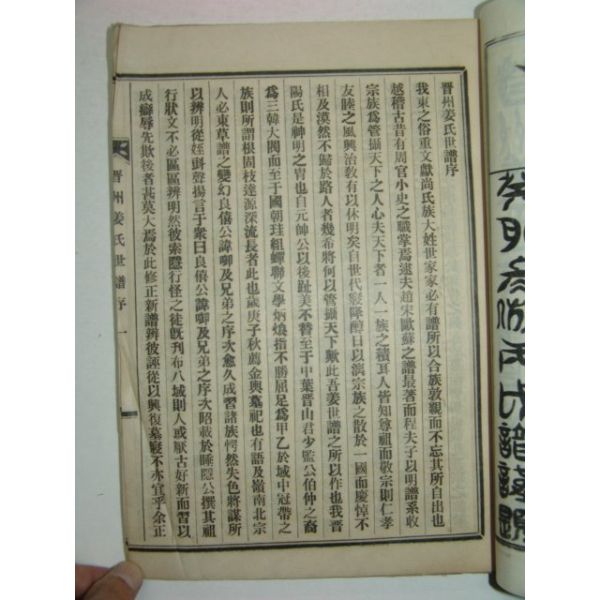 晋州姜氏世譜序
我東之俗重文獻尚氏族大姓世家家必有譜所以合族敦親而不忘其所自出也
越稽古昔有周官小史之職掌焉逮夫趙宋歐蘇之譜最著而程夫子以明譜系收
宗族爲管攝天下之人心夫天下者一人一族之積耳人皆知尊祖而敬宗則仁孝
友睦之風興治敎有以休明矣自世代寢降醇日以漓宗族之散於一國而慶悼不
相及漠然不歸於路人者幾希將何以管攝天下歟此吾姜世譜之所以作也我晋
陽氏是神明之胄也自元帥公以後趾美不替至于中葉晋山君少監公伯仲之裔
爲三韓大閥而至于國朝珪組蟬聯文學炳烺指不勝屈足爲甲乙於域中冠帶之
族則所謂根固枝達源深流長者此也歲庚子秋薦金輿墓祀也有語及嶺南北宗
人必東草譜之變幻良僖公諱卿及兄弟之序次愈久成習諸族愕然失色將謀所
以辨明從姪聲揚言于衆曰良僖公諱卿及兄弟之序次昭載於睡隱公撰其祖
行狀文不必區區辨明然彼索隱行怪之徒旣刊布八域則人或厭古好新而習以
成癖辱先欺後者甚莫大焉於此修正新譜辨彼誣從以興復墓寢不亦宜乎余正
晋州姜氏世譜序 一